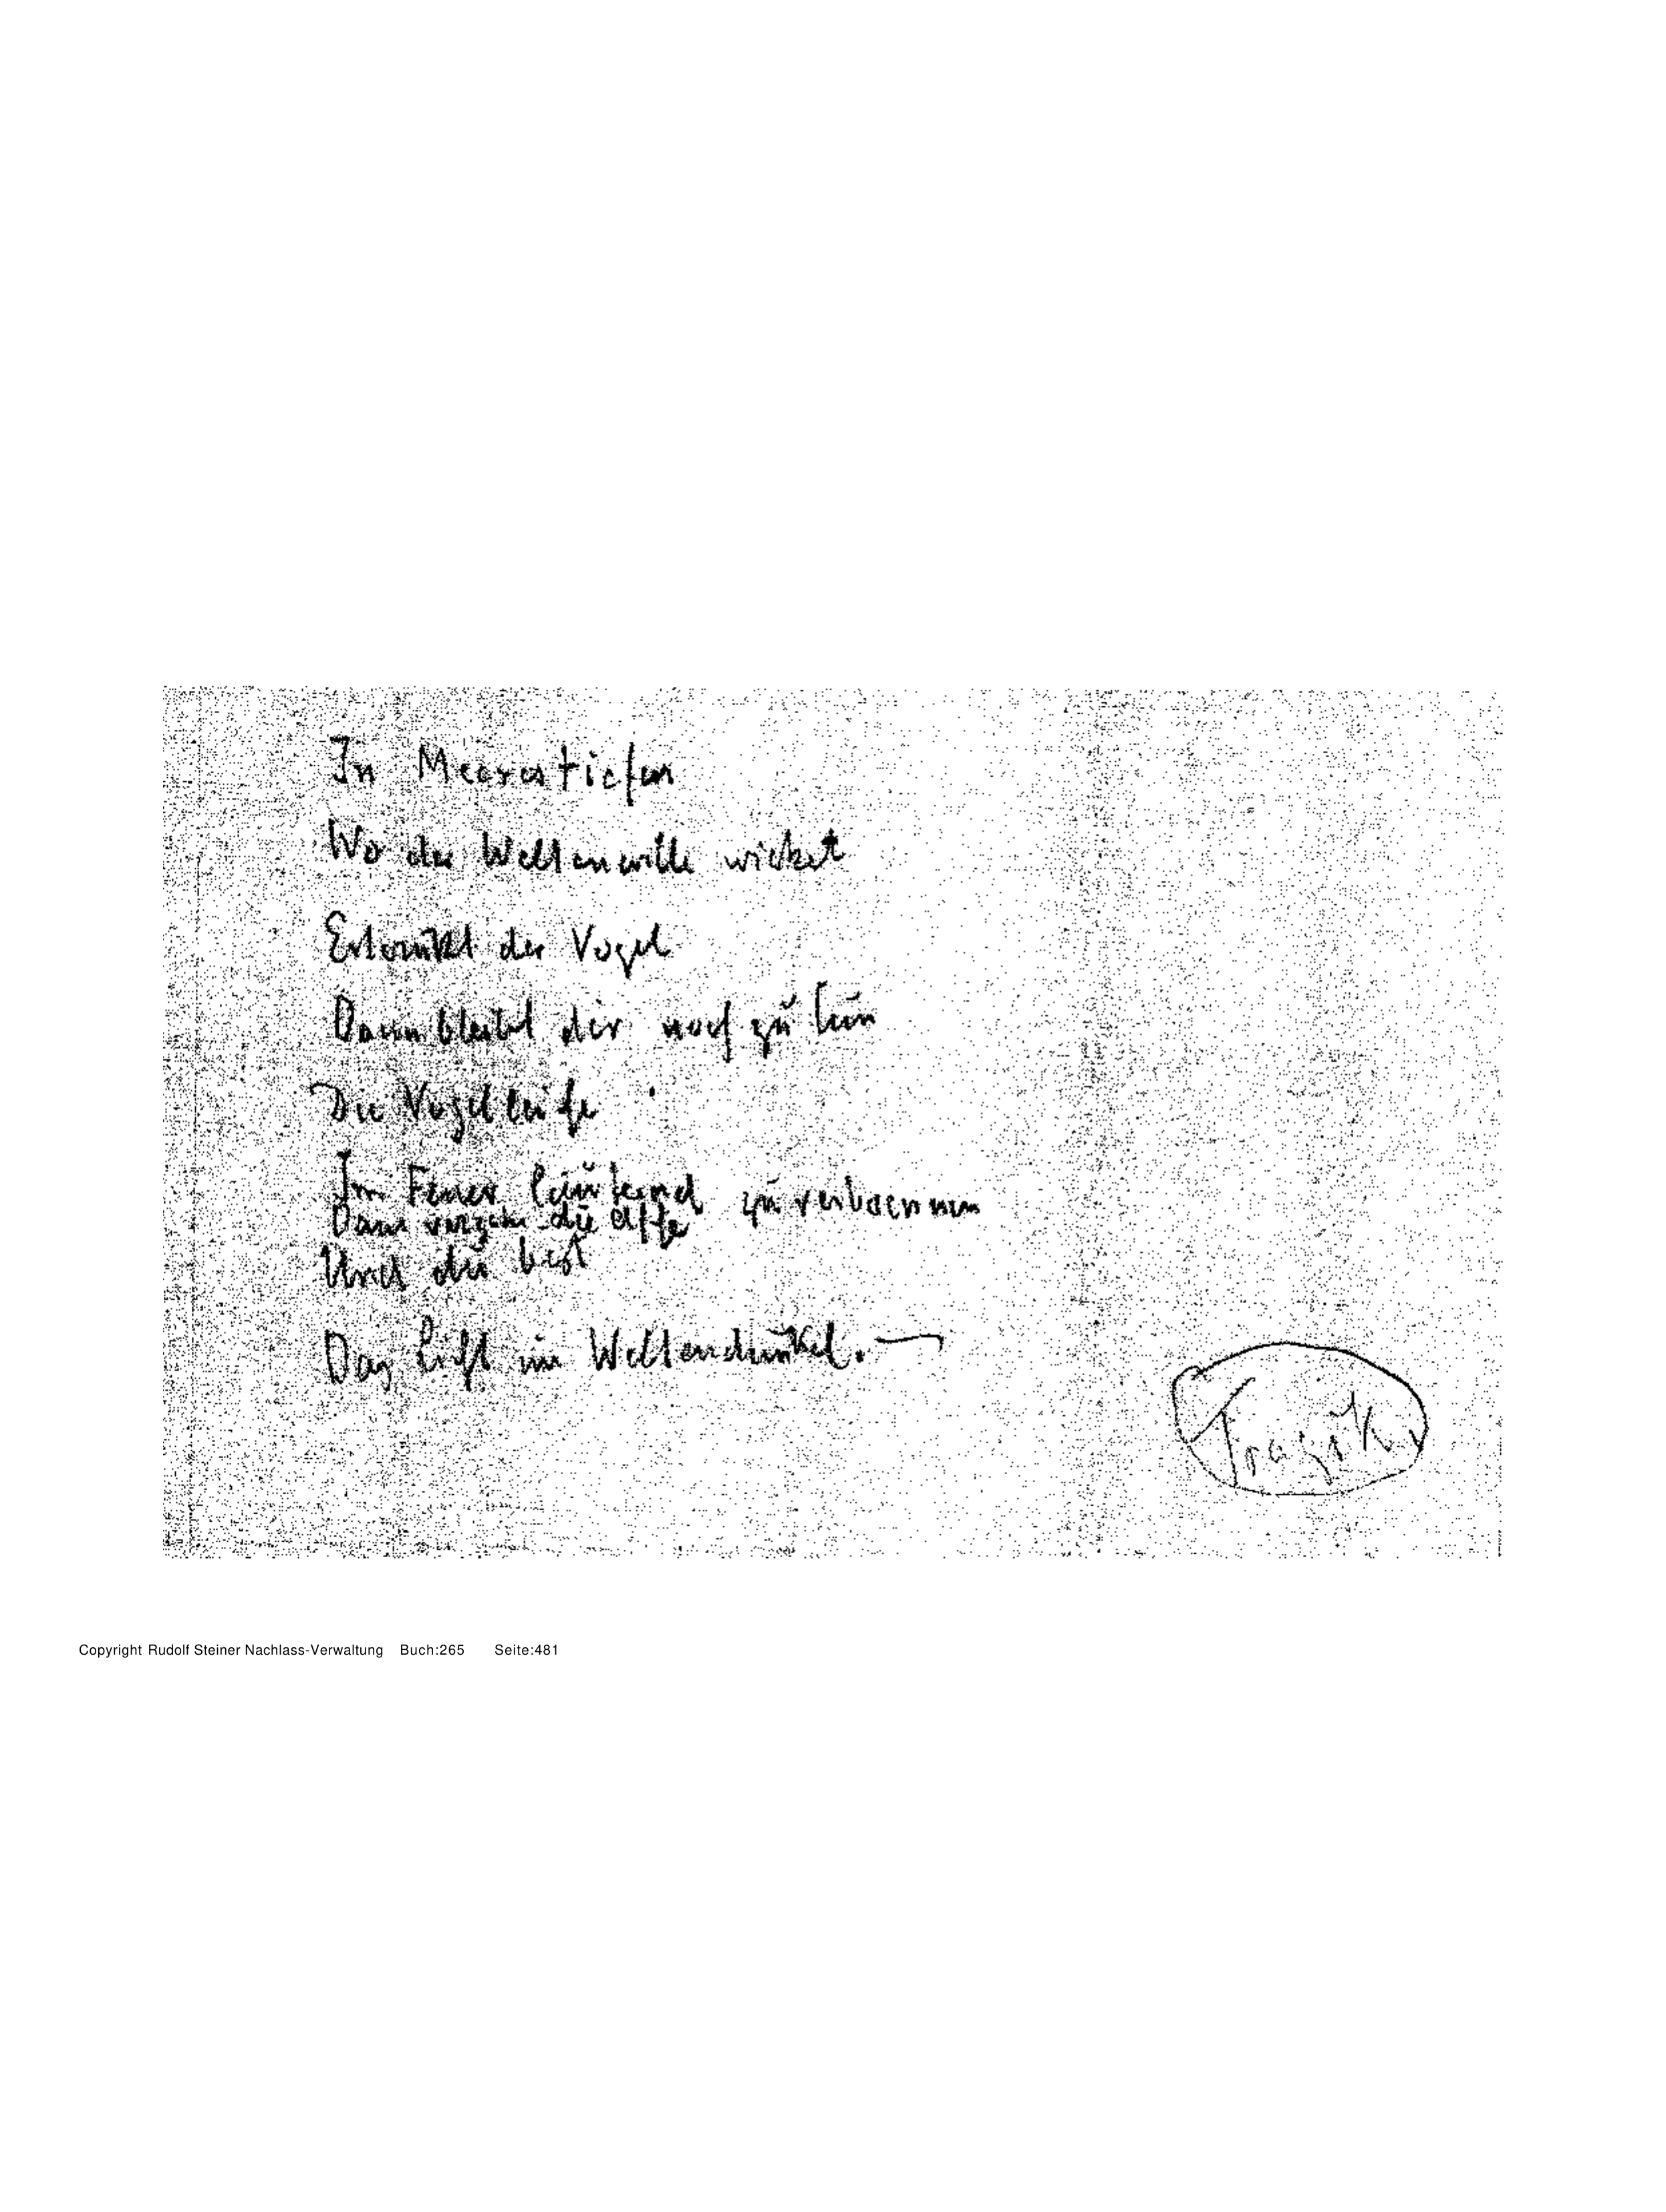 In Meerestiefen
Wo der Weltenwille wirket
Ertrinkt der Vogel
Dann bleibt dir noch zu tun
Die Vogelleiche
Im Feuer läuternd zu verbrennen
Dann verzehr die Asche
Und du bist
Das Licht im Weltendunkel. —
Tragik.
Copyright Rudolf Steiner Nachlass-Verwaltung Buch:265 Seite:481